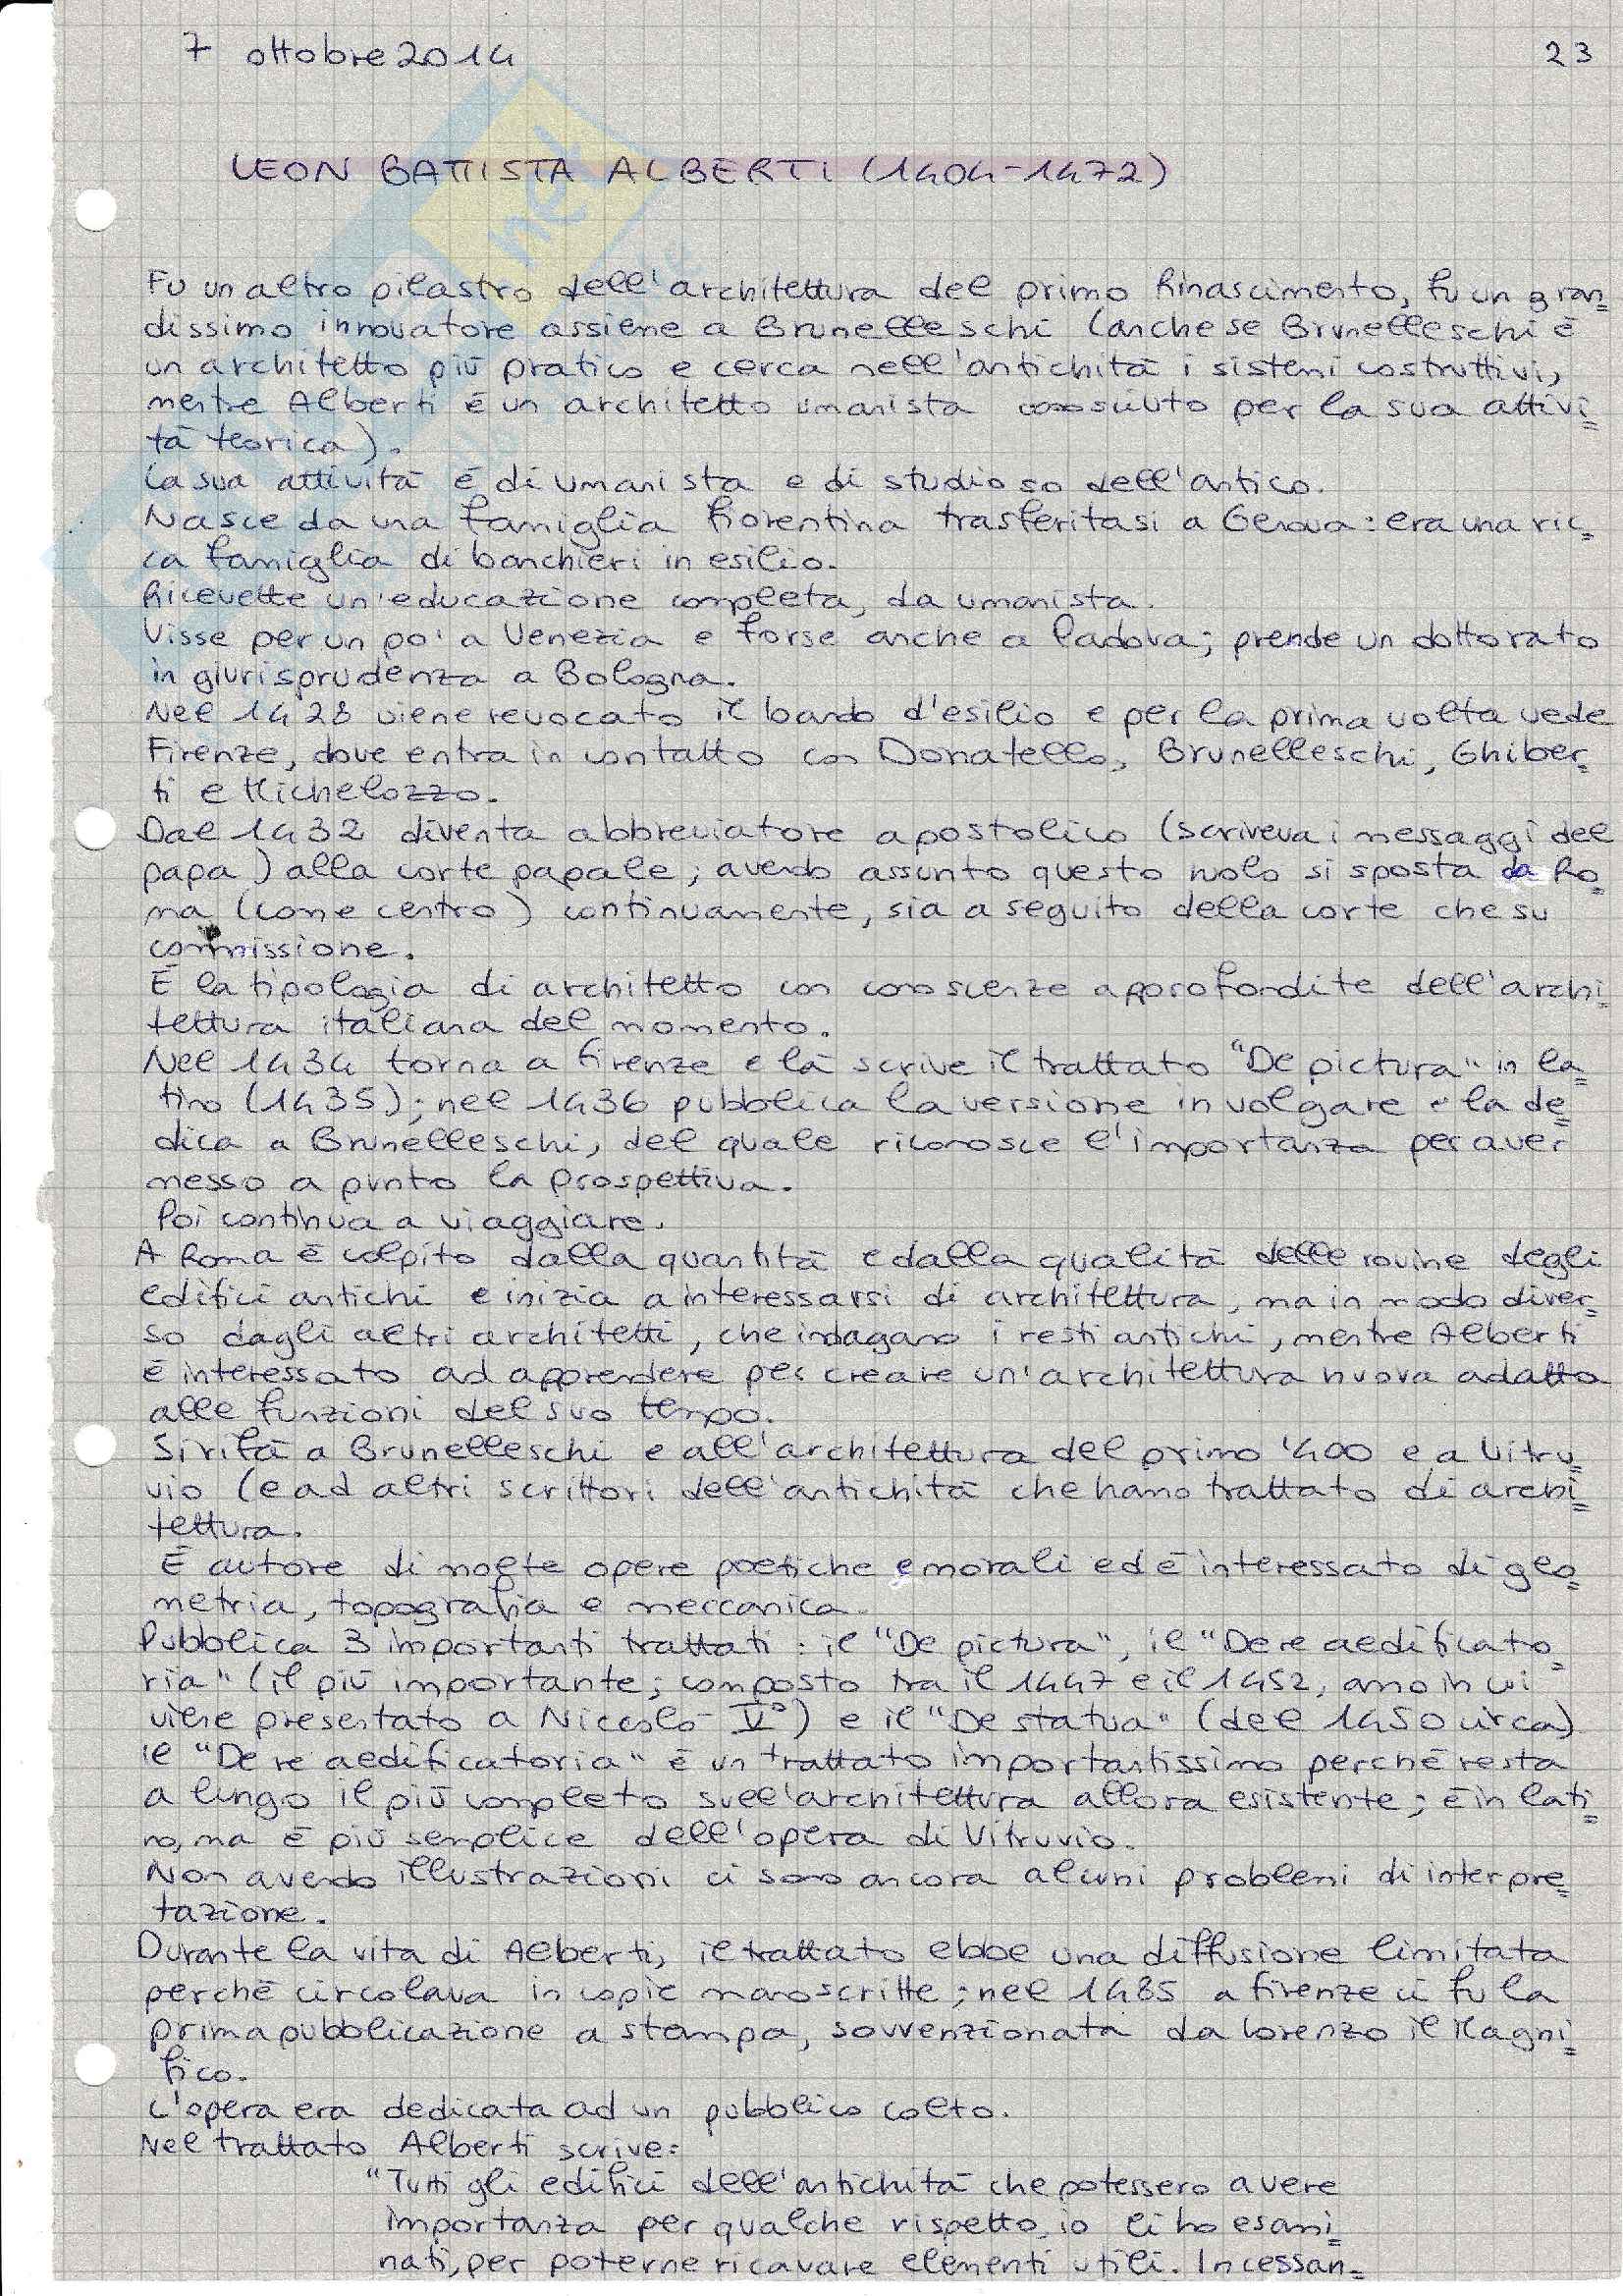 7 ottobre 2014
23
LEON BATTISTA ALBERTI (1404-1472)
Fu un altro pilastro dell'architettura del primo Rinascimento, fu un gran=
dissimo innovatore assieme a Brunelleschi (anche se Brunelleschi è
un architetto più pratico e cerca nell'antichità i sistemi costruttivi,
mentre Alberti è un architetto umanista conosciuto per la sua attivi=
tà teorica).
La sua attività è di umanista e di studioso dell'antico.
Nasce da una famiglia fiorentina trasferitasi a Genova: era una ric=
ca famiglia di banchieri in esilio.
Ricevette un'educazione completa, da umanista.
Visse per un po' a Venezia e forse anche a Padova; prende un dottorato
in giurisprudenza a Bologna.
Nel 1428 viene revocato il bando d'esilio e per la prima volta vede
Firenze, dove entra in contatto con Donatello, Brunelleschi, Ghiber=
ti e Michelozzo.
Dal 1432 diventa abbreviatore apostolico (scriveva i messaggi del
papa) alla corte papale; avendo assunto questo ruolo si sposta da Ro=
ma (come centro) continuamente, sia a seguito della corte che su
commissione.
È la tipologia di architetto con conoscenze approfondite dell'archi=
tettura italiana del momento.
Nel 1434 torna a Firenze e là scrive il trattato "De pictura" in la=
tino (1435); nel 1436 pubblica la versione in volgare e la de=
dica a Brunelleschi, del quale riconosce l'importanza per aver
messo a punto la prospettiva.
Poi continua a viaggiare.
A Roma è colpito dalla quantità e dalla qualità delle rovine degli
edifici antichi e inizia a interessarsi di architettura, ma in modo diver=
so dagli altri architetti, che indagano i resti antichi, mentre Alberti
è interessato ad apprendere per creare un'architettura nuova adatta
alle funzioni del suo tempo.
Si rifà a Brunelleschi e all'architettura del primo '400 e a Vitru=
vio (e ad altri scrittori dell'antichità che hano trattato di archi=
tettura.
È autore di molte opere poetiche e morali ed è interessato di geo=
metria, topografia e meccanica.
Pubblica 3 importanti trattati: il "De pictura", il "De re aedificato=
ria" (il più importante; composto tra il 1447 e il 1452, anno in cui
viene presentato a Niccolò V°) e il "De statua" (del 1450 circa)
il "De re aedificatoria" è un trattato importantissimo perché resta
a lungo il più completo sull'architettura allora esistente; è in lati=
no, ma è più semplice dell'opera di Vitruvio.
Non avendo illustrazioni ci sono ancora alcuni problemi di interpre=
tazione.
Durante la vita di Alberti, il trattato ebbe una diffusione limitata
perché circolava in copie manoscritte; nel 1485 a Firenze ci fu la
prima pubblicazione a stampa, sovvenzionata da Lorenzo il Magni=
fico.
L'opera era dedicata ad un pubblico colto.
Nel trattato Alberti scrive:
"Tutti gli edifici dell'antichità che potessero avere
importanza per qualche rispetto, io li ho esami=
nati, per poterne ricavare elementi utili. Incessan=